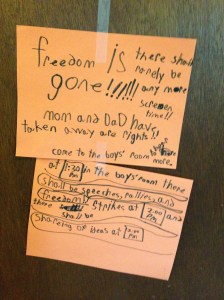 freedom is there should
rarely be
gone!!!!!! any more
screen
time!!
mom and DaD have
taken away are rights!!
come to the boys' room
more.
at 1:30 PM in the boys' room there
shall be speeches, rallies, and
freedom strikes at PM and
there shall be
shareing of ideas at PM